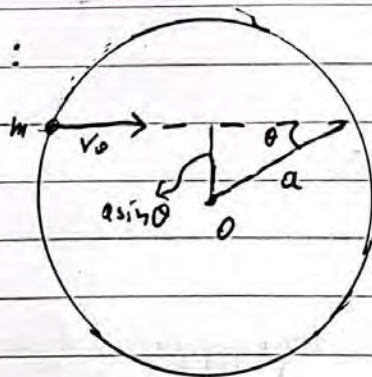 :
m
V₀
θ
a
a sinθ
O